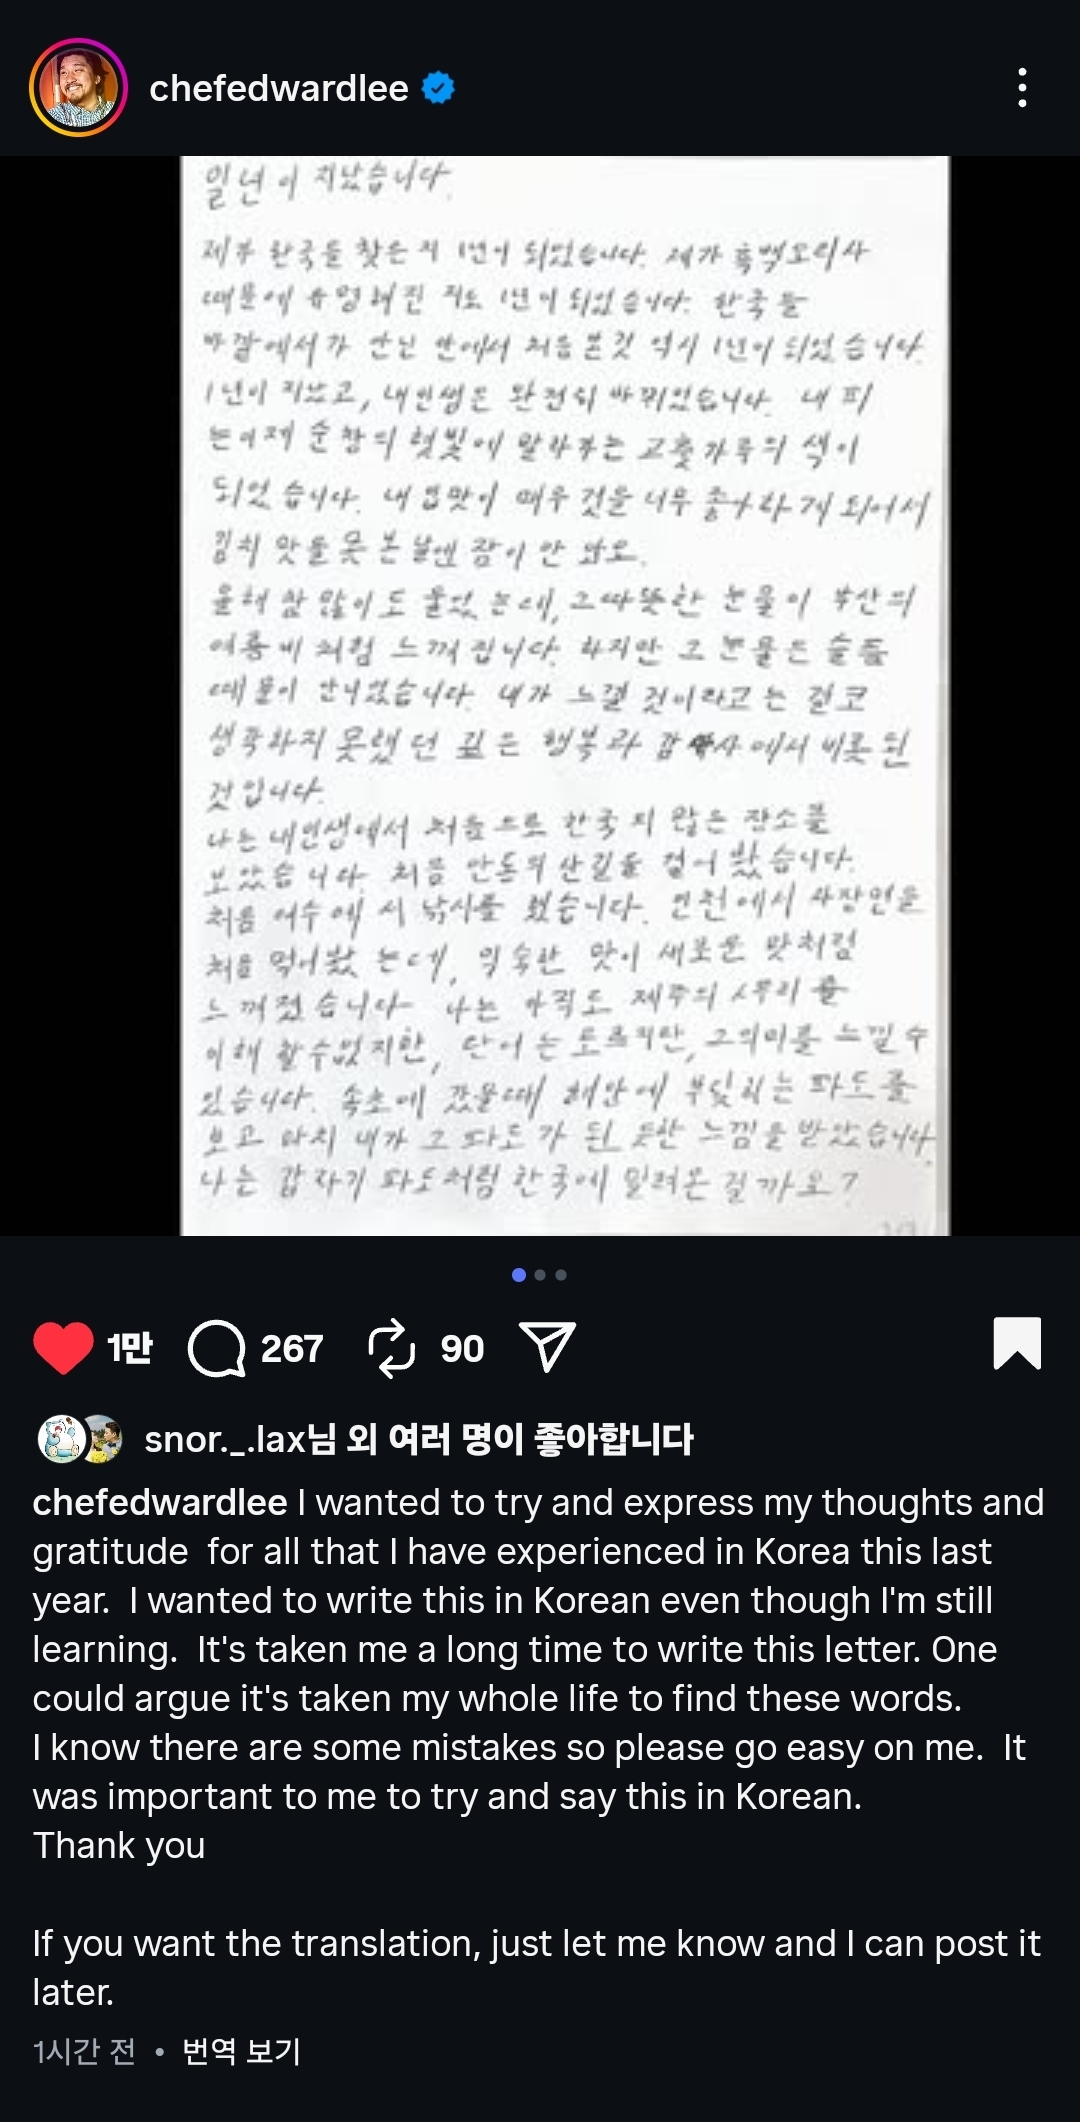 chefedwardlee
일년이 지났습니다.
한국을 찾은 지 1년이 되었습니다. 제가 흑백요리사
때문에 유명해진 지도 1년이 되었습니다. 한국을
바깥에서가 안닌 안에서 처음 본것 역시 1년이 되었습니다.
1년이 지났고, 내인생은 완전히 바뀌었습니다. 내 피
는이제 순창의 햇빛에 말라가는 고춧가루의 색이
되었습니다. 내 입맛이 매우 것을 너무 좋아하게 되어서
김치 맛을 못 본 날엔 잠이 안 와요.
올해 참 많이도 울었는데, 그따뜻한 눈물이 부산의
여름비처럼 느껴집니다. 하지만 그 눈물은 슬픔
때문이 안니었습니다. 내가 느낄 것이라고는 결코
생각하지 못했던 깊은 행복과 감사에서 비롯된
것입니다.
나는 내인생에서 처음으로 한국의 많은 장소를
보았습니다. 처음 안동의 산길을 걸어봤습니다.
처음 여수에서 낚시를 했습니다. 인천에서 짜장면을
처음 먹어봤는데, 익숙한 맛이 새로운 맛처럼
느껴졌습니다. 나는 아직도 제주의 사투리를
이해할수없지만, 단어는 모르지만, 그의미를 느낄수
있습니다. 속초에 갔을때 해안에 부딪치는 파도를
보고 마치 내가 그 파도가 된 듯한 느낌을 받았습니다.
나는 갑자기 파도처럼 한국에 밀려온 걸까요?
1만 267 90
snor._.lax님 외 여러 명이 좋아합니다
chefedwardlee I wanted to try and express my thoughts and
gratitude for all that I have experienced in Korea this last
year. I wanted to write this in Korean even though I'm still
learning. It's taken me a long time to write this letter. One
could argue it's taken my whole life to find these words.
I know there are some mistakes so please go easy on me. It
was important to me to try and say this in Korean.
Thank you
If you want the translation, just let me know and I can post it
later.
1시간 전 • 번역 보기